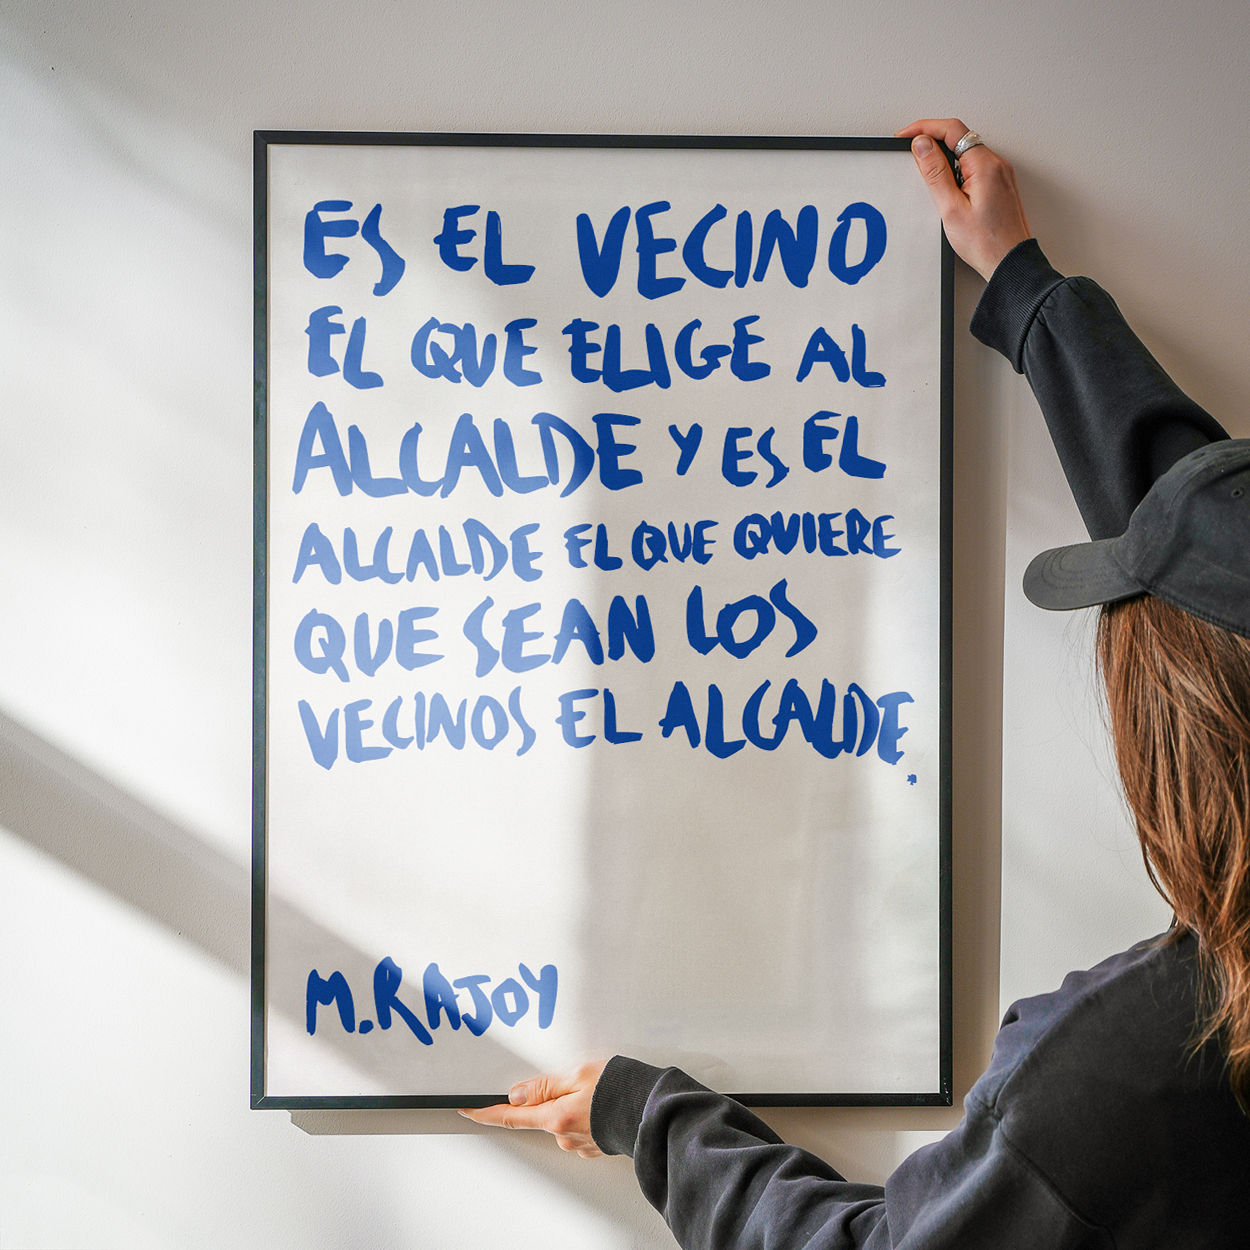 ES EL VECINO
EL QUE ELIGE AL
ALCALDE Y ES EL
ALCALDE EL QUE QUIERE
QUE SEAN LOS
VECINOS EL ALCALDE.
M.RAJOY